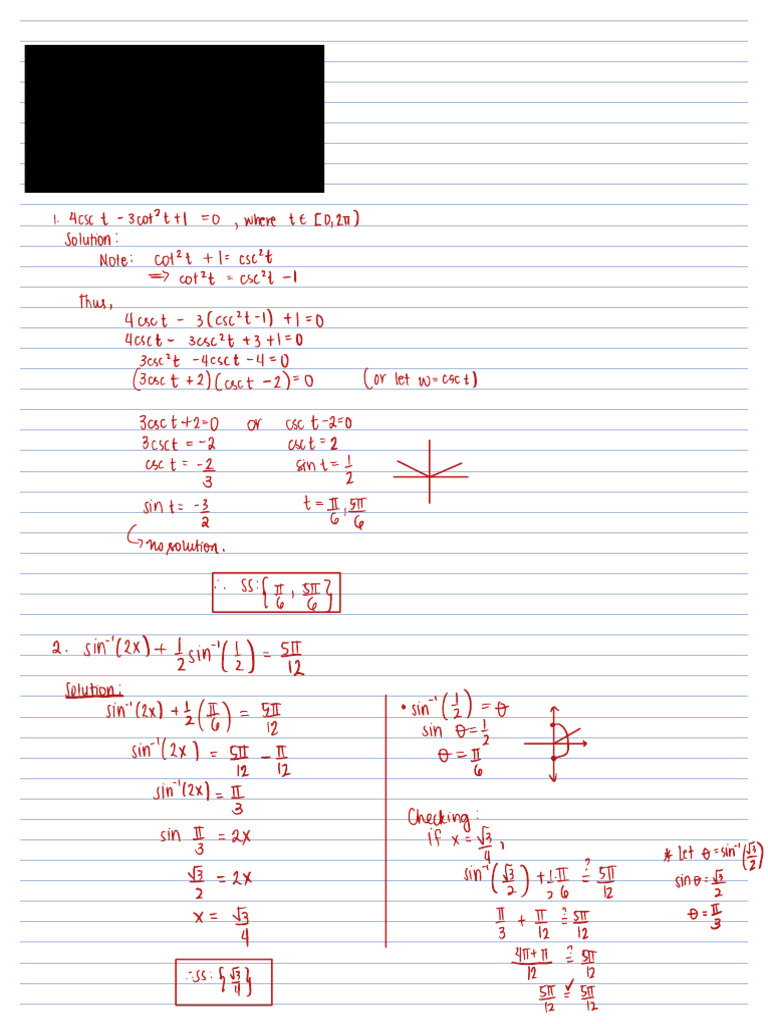 1. 4csc t - 3cot²t + 1 = 0 , where t ∈ [0, 2π)
Solution:
Note: cot²t + 1 = csc²t
⟹ cot²t = csc²t - 1
thus,
4csc t - 3(csc²t - 1) + 1 = 0
4csc t - 3csc²t + 3 + 1 = 0
3csc²t - 4csc t - 4 = 0
(3csc t + 2)(csc t - 2) = 0 (or let w = csc t)
3csc t + 2 = 0 or csc t - 2 = 0
3csc t = -2 csc t = 2
csc t = -2/3 sin t = 1/2
sin t = -3/2 t = π/6, 5π/6
↳ no solution.
∴ SS: {π/6, 5π/6}
2. sin⁻¹(2x) + 1/2 sin⁻¹(1/2) = 5π/12
Solution:
sin⁻¹(2x) + 1/2(π/6) = 5π/12
sin⁻¹(2x) = 5π/12 - π/12
sin⁻¹(2x) = π/3
sin π/3 = 2x
√3/2 = 2x
x = √3/4
∴ SS: {√3/4}
• sin⁻¹(1/2) = θ
sin θ = 1/2
θ = π/6
Checking:
if x = √3/4,
sin⁻¹(√3/2) + 1/2·π/6 ≟ 5π/12
π/3 + π/12 ≟ 5π/12
4π+π/12 ≟ 5π/12
5π/12 = 5π/12 ✓
* let θ = sin⁻¹(√3/2)
sin θ = √3/2
θ = π/3